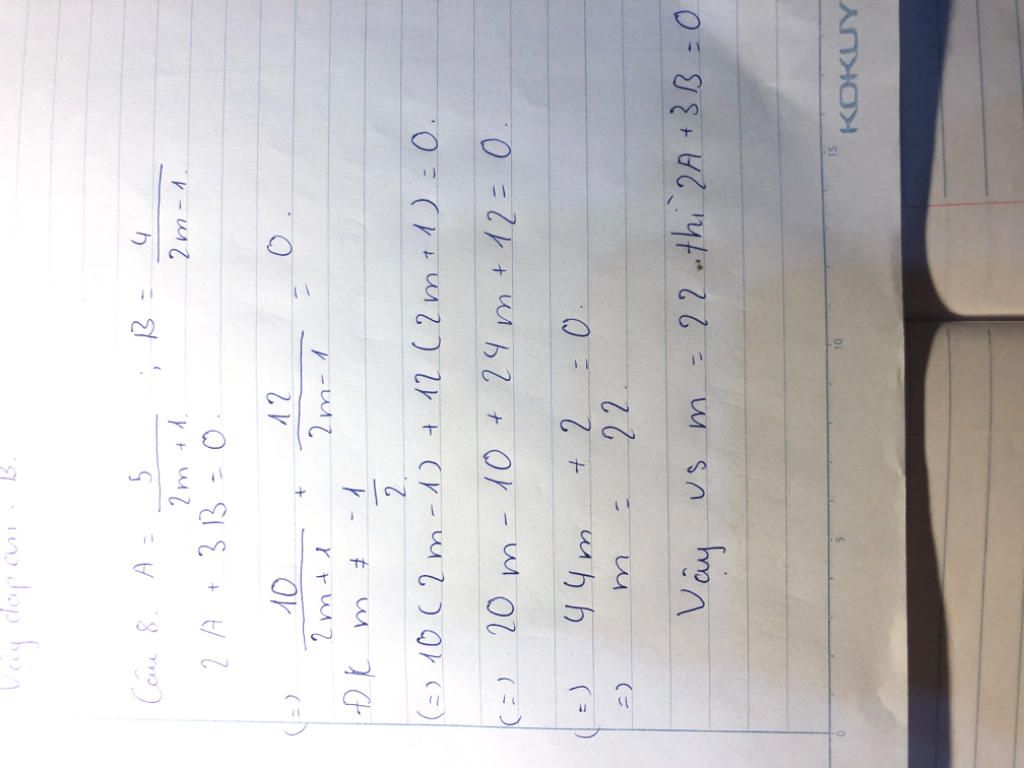 Vậy đáp án. B.
Câu 8. A = 5/(2m+1) ; B = 4/(2m-1).
2A + 3B = 0.
(=) 10/(2m+1) + 12/(2m-1) = 0.
ĐK m ≠ -1/2
(=) 10(2m-1) + 12(2m+1) = 0.
(=) 20m - 10 + 24m + 12 = 0.
(=) 44m + 2 = 0.
=) m = 22.
Vậy vs m = 22 thì 2A + 3B = 0
0 5 10 15
KOKUY